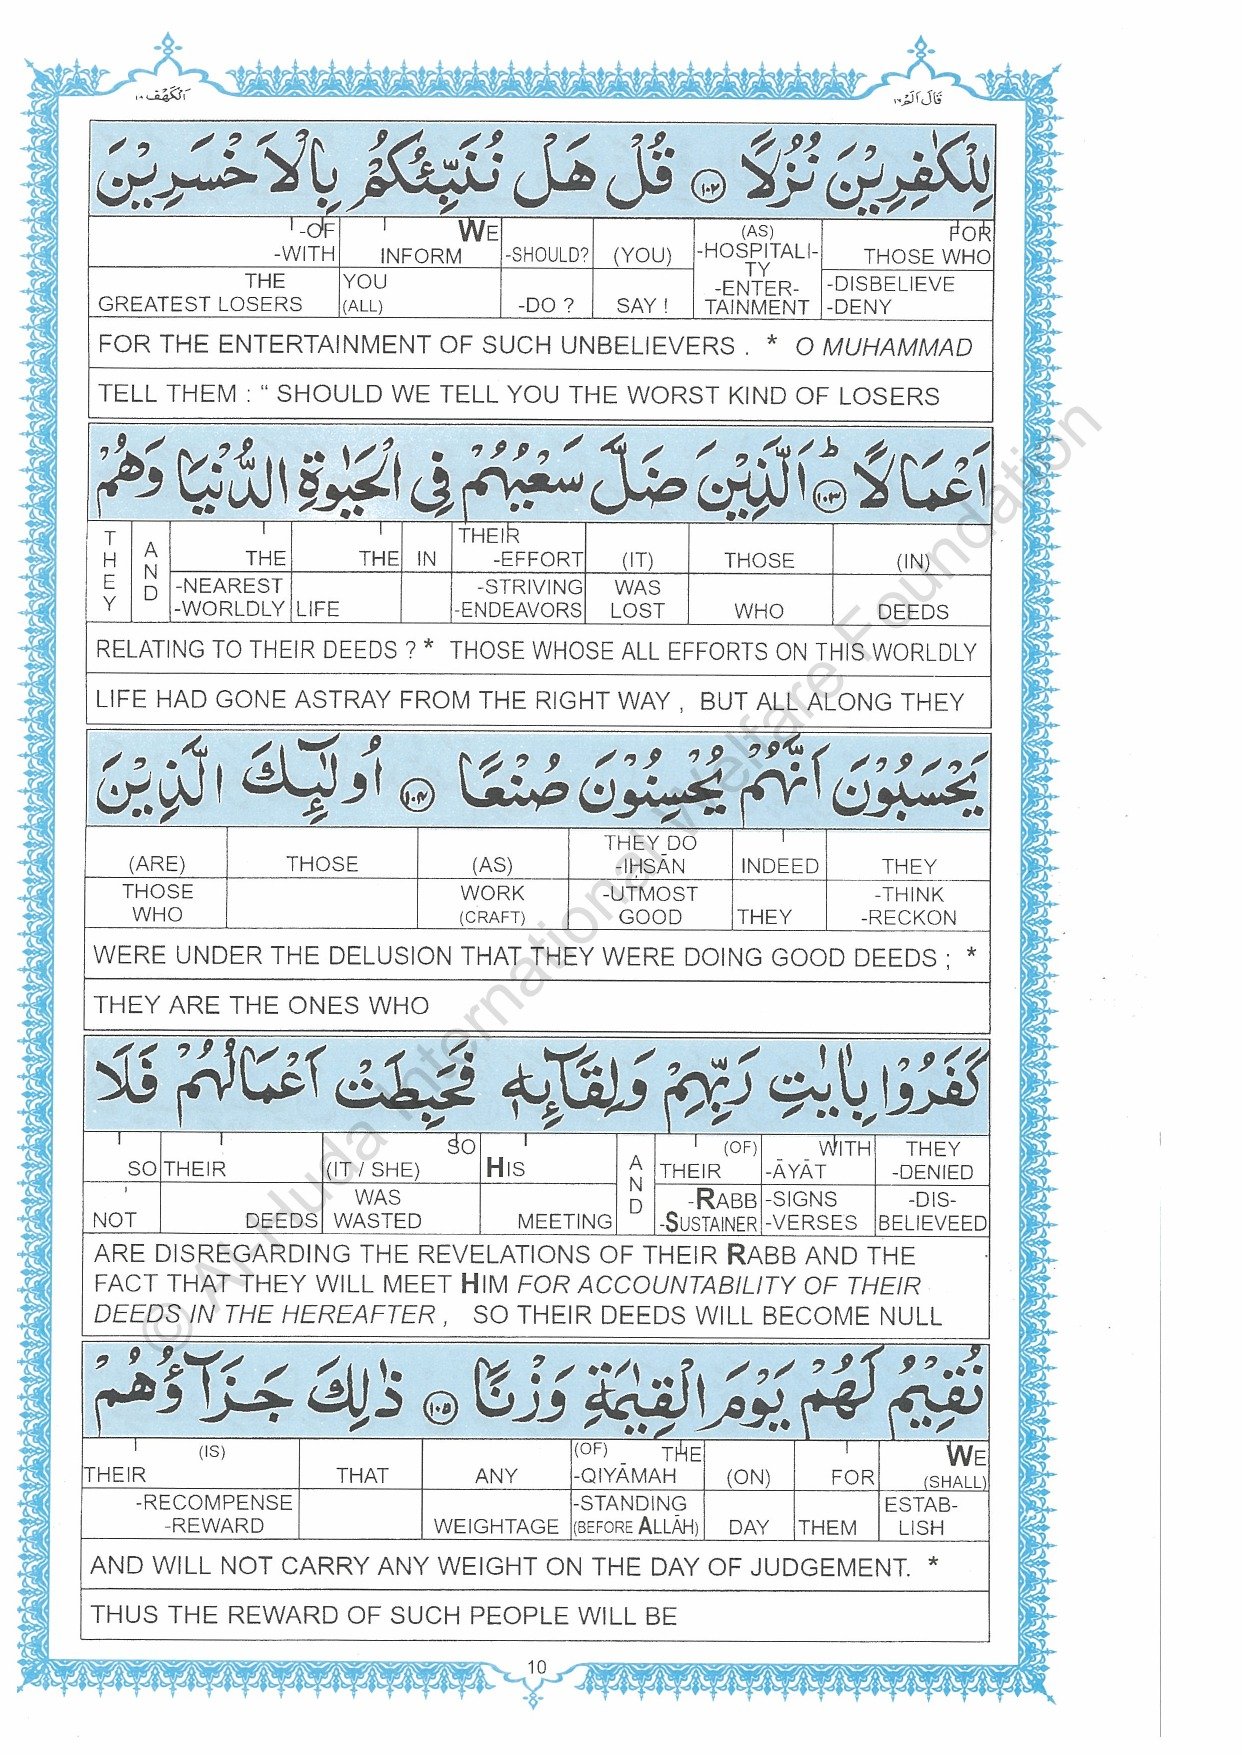 الكهف ١٨
قال الم ١٦
لِلْكٰفِرِيْنَ نُزُلًا ١٠٢ قُلْ هَلْ نُنَبِّئُكُمْ بِالْاَخْسَرِيْنَ
-OF WE (AS) FOR
-WITH INFORM -SHOULD? (YOU) -HOSPITALI- THOSE WHO
TY
THE YOU -ENTER- -DISBELIEVE
GREATEST LOSERS (ALL) -DO ? SAY ! TAINMENT -DENY
FOR THE ENTERTAINMENT OF SUCH UNBELIEVERS . * O MUHAMMAD
TELL THEM : “ SHOULD WE TELL YOU THE WORST KIND OF LOSERS
اَعْمَالًا ١٠٣ اَلَّذِيْنَ ضَلَّ سَعْيُهُمْ فِى الْحَيٰوةِ الدُّنْيَا وَهُمْ
THEY AND THE THE IN THEIR -EFFORT (IT) THOSE (IN)
-NEAREST -STRIVING WAS
-WORLDLY LIFE -ENDEAVORS LOST WHO DEEDS
RELATING TO THEIR DEEDS ? * THOSE WHOSE ALL EFFORTS ON THIS WORLDLY
LIFE HAD GONE ASTRAY FROM THE RIGHT WAY , BUT ALL ALONG THEY
يَحْسَبُوْنَ اَنَّهُمْ يُحْسِنُوْنَ صُنْعًا ١٠٤ اُولٰٓئِكَ الَّذِيْنَ
THEY DO
(ARE) THOSE (AS) -IHSĀN INDEED THEY
THOSE WORK -UTMOST -THINK
WHO (CRAFT) GOOD THEY -RECKON
WERE UNDER THE DELUSION THAT THEY WERE DOING GOOD DEEDS ; *
THEY ARE THE ONES WHO
كَفَرُوْا بِاٰيٰتِ رَبِّهِمْ وَلِقَآئِهٖ فَحَبِطَتْ اَعْمَالُهُمْ فَلَا
SO (OF) WITH THEY
SO THEIR (IT / SHE) HIS AND THEIR -ĀYĀT -DENIED
WAS -RABB -SIGNS -DIS-
NOT DEEDS WASTED MEETING -SUSTAINER -VERSES BELIEVEED
ARE DISREGARDING THE REVELATIONS OF THEIR RABB AND THE
FACT THAT THEY WILL MEET HIM FOR ACCOUNTABILITY OF THEIR
DEEDS IN THE HEREAFTER , SO THEIR DEEDS WILL BECOME NULL
نُقِيْمُ لَهُمْ يَوْمَ الْقِيٰمَةِ وَزْنًا ١٠٥ ذٰلِكَ جَزَآؤُهُمْ
(IS) (OF) THE WE
THEIR THAT ANY -QIYĀMAH (ON) FOR (SHALL)
-RECOMPENSE -STANDING ESTAB-
-REWARD WEIGHTAGE (BEFORE ALLĀH) DAY THEM LISH
AND WILL NOT CARRY ANY WEIGHT ON THE DAY OF JUDGEMENT. *
THUS THE REWARD OF SUCH PEOPLE WILL BE
10
© Al Huda International Welfare Foundation